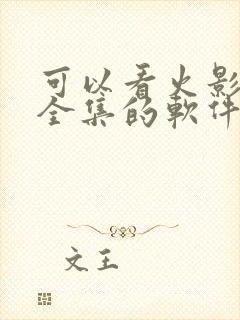 可以看火影
全集的軟件
文王